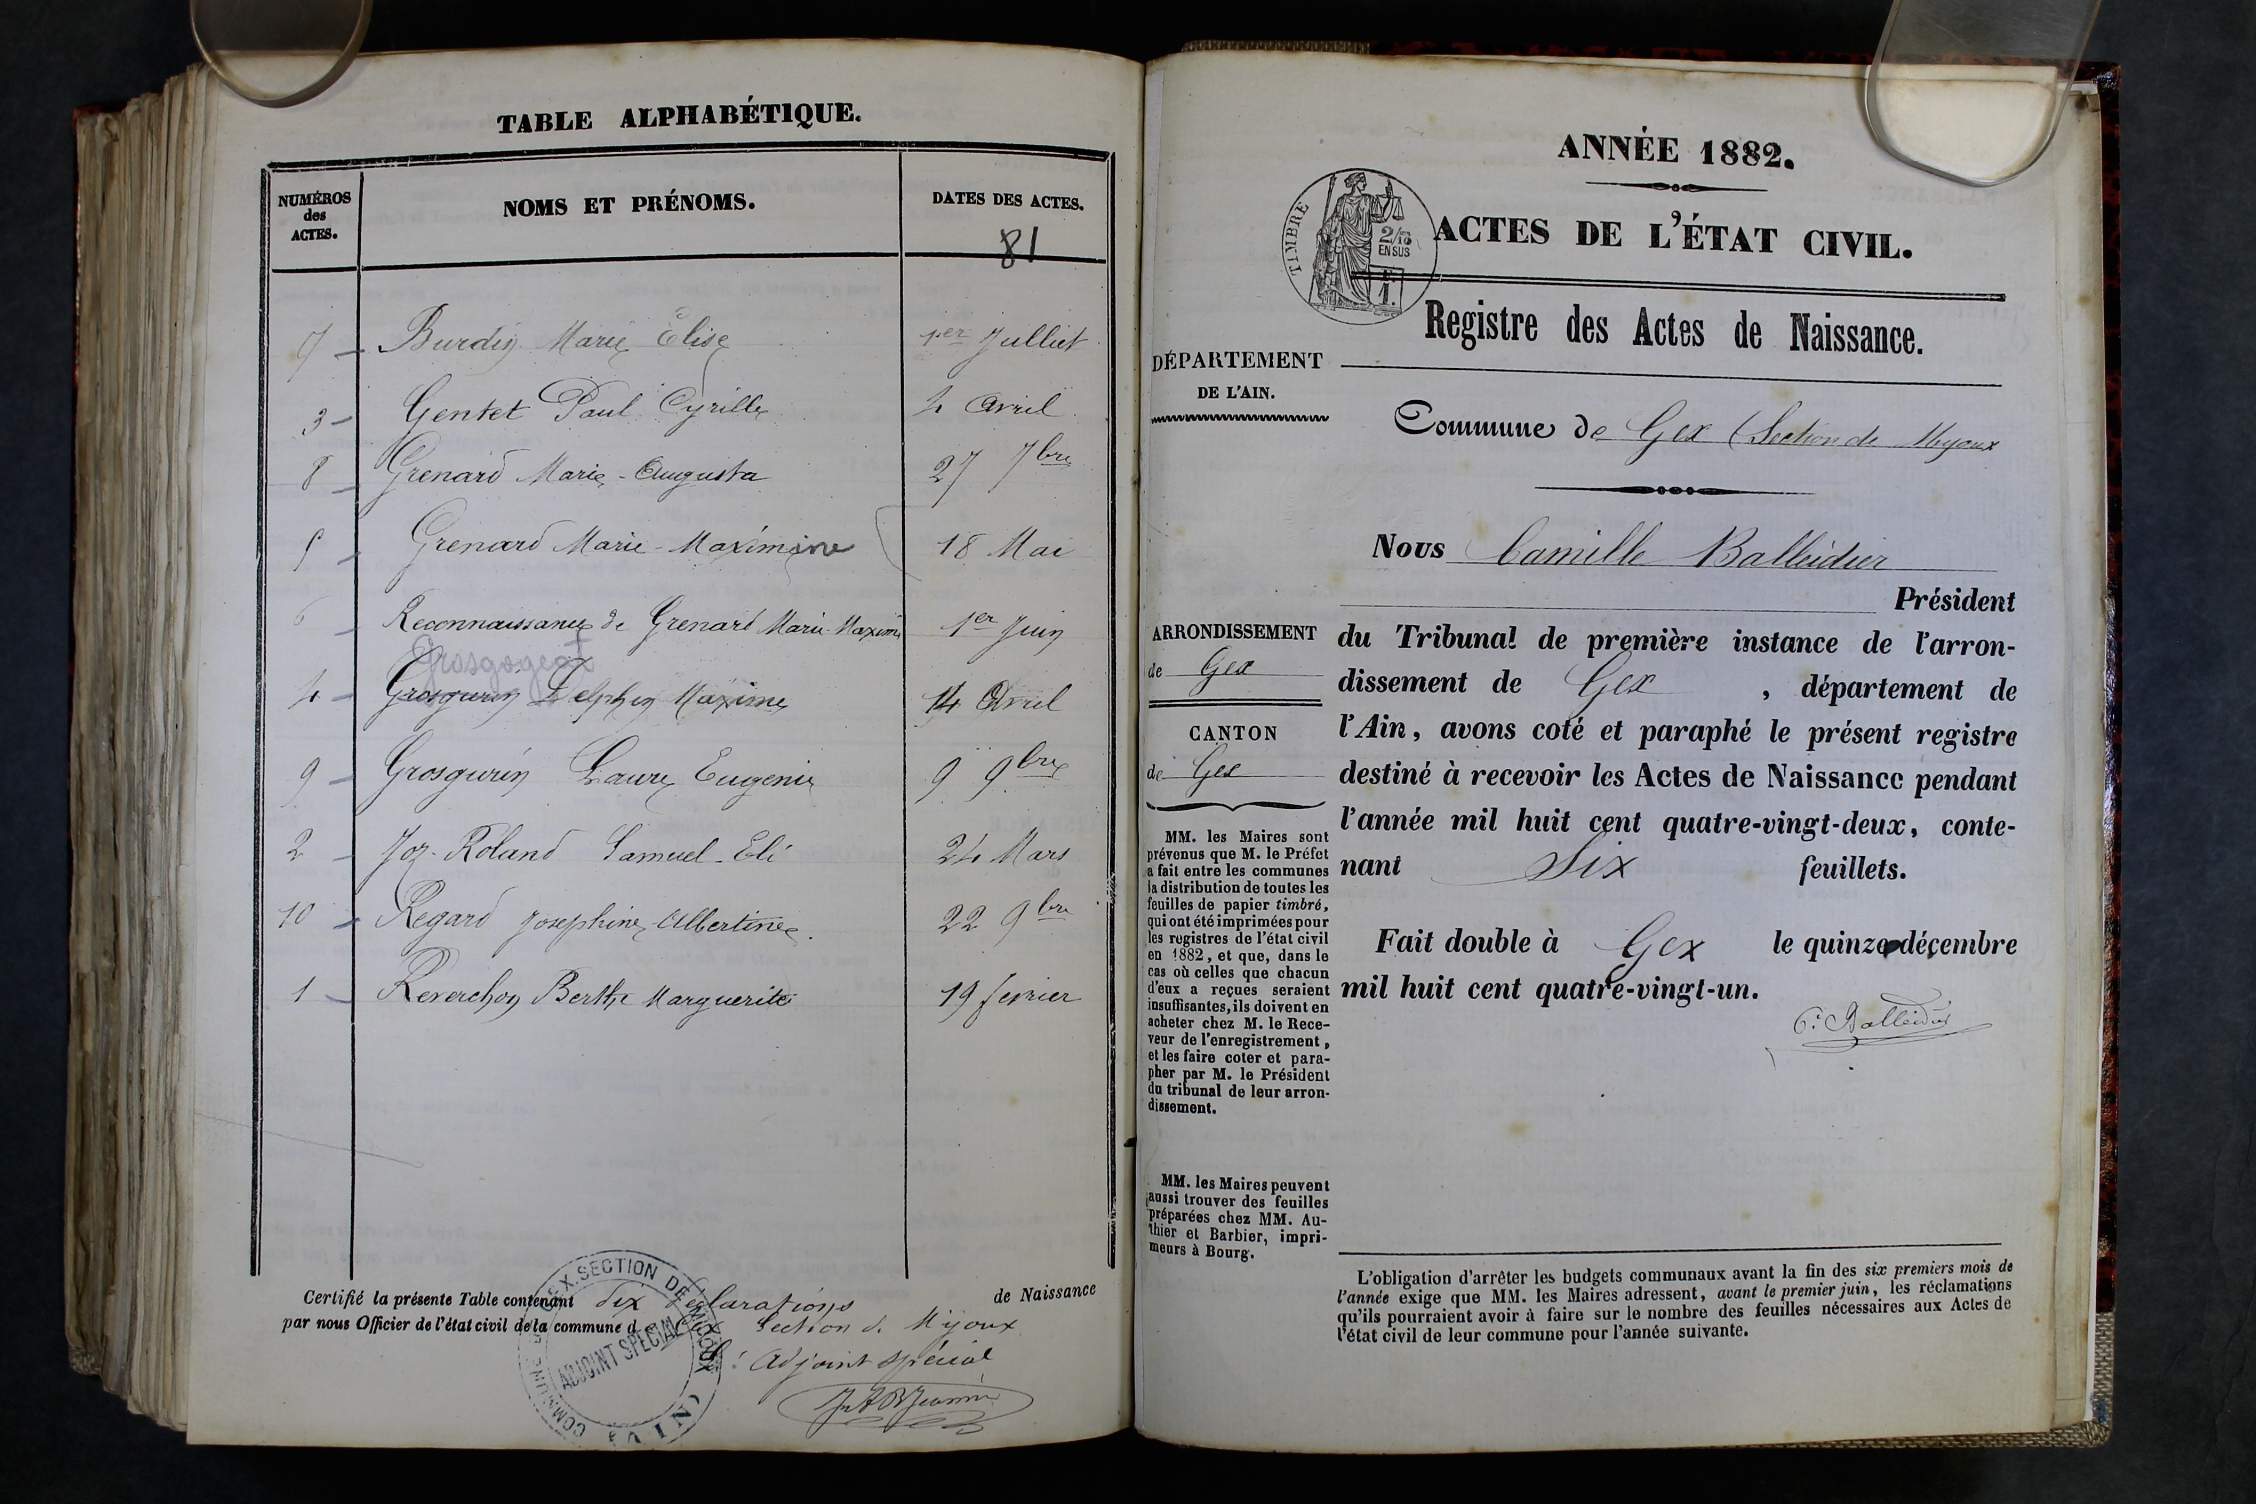 TABLE ALPHABÉTIQUE.
NUMÉROS
des
ACTES.
NOMS ET PRÉNOMS.
DATES DES ACTES.
81
7 Burdin Marie Elise 1er Julliet
3 Gentet Paul Cyrille 4 Avril
8 Grenard Marie-Augusta 27 7bre
5 Grenard Marie-Maximine 18 Mai
6 Reconnaissance de Grenard Marie-Maxim 1er Juin
Grosgogeat
4 Grosgurin Delphin Maxime 14 Avril
9 Grosgurin Laure Eugenie 9 9bre
2 Joz-Roland Samuel-Eli 24 Mars
10 Regard Josephine Albertine. 22 9bre
1 Reverchon Berthe Marguerite 19 fevrier
Certifié la présente Table contenant dix déclarations de Naissance
par nous Officier de l'état civil de la commune d Gex Section de Mijoux
L'adjoint spécial
COMMUNE DE GEX. SECTION DE MIJOUX (AIN)
ADJOINT SPECIAL
ANNÉE 1882.
TIMBRE
2/10
EN SUS
1.
ACTES DE L'ÉTAT CIVIL.
Registre des Actes de Naissance.
DÉPARTEMENT
DE L'AIN.
Commune de Gex (Section de Mijoux
Nous Camille Balleidier
Président
du Tribunal de première instance de l'arron-
dissement de Gex, département de
l'Ain, avons coté et paraphé le présent registre
destiné à recevoir les Actes de Naissance pendant
l'année mil huit cent quatre-vingt-deux, conte-
nant Six feuillets.
Fait double à Gex le quinze décembre
mil huit cent quatre-vingt-un.
C. Balleidier
ARRONDISSEMENT
de Gex
CANTON
de Gex
MM. les Maires sont
prévenus que M. le Préfet
a fait entre les communes
la distribution de toutes les
feuilles de papier timbré,
qui ont été imprimées pour
les registres de l'état civil
en 1882, et que, dans le
cas où celles que chacun
d'eux a reçues seraient
insuffisantes, ils doivent en
acheter chez M. le Rece-
veur de l'enregistrement,
et les faire coter et para-
pher par M. le Président
du tribunal de leur arron-
dissement.
MM. les Maires peuvent
aussi trouver des feuilles
préparées chez MM. Au-
thier et Barbier, impri-
meurs à Bourg.
L'obligation d'arrêter les budgets communaux avant la fin des six premiers mois de
l'année exige que MM. les Maires adressent, avant le premier juin, les réclamations
qu'ils pourraient avoir à faire sur le nombre des feuilles nécessaires aux Actes de
l'état civil de leur commune pour l'année suivante.